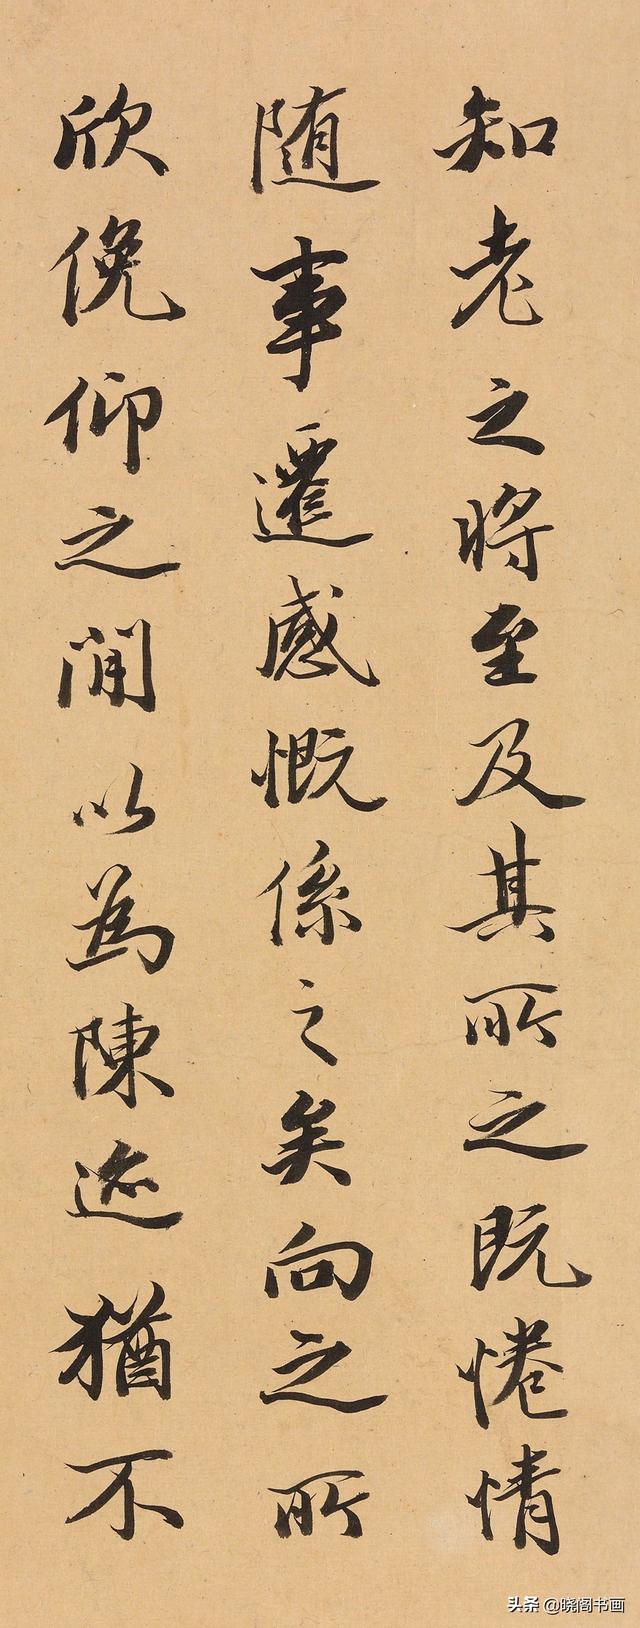 知老之将至及其所之既惓情
随事遷感慨係之矣向之所
欣俛仰之閒以為陳迹猶不
头条 @晓阁书画